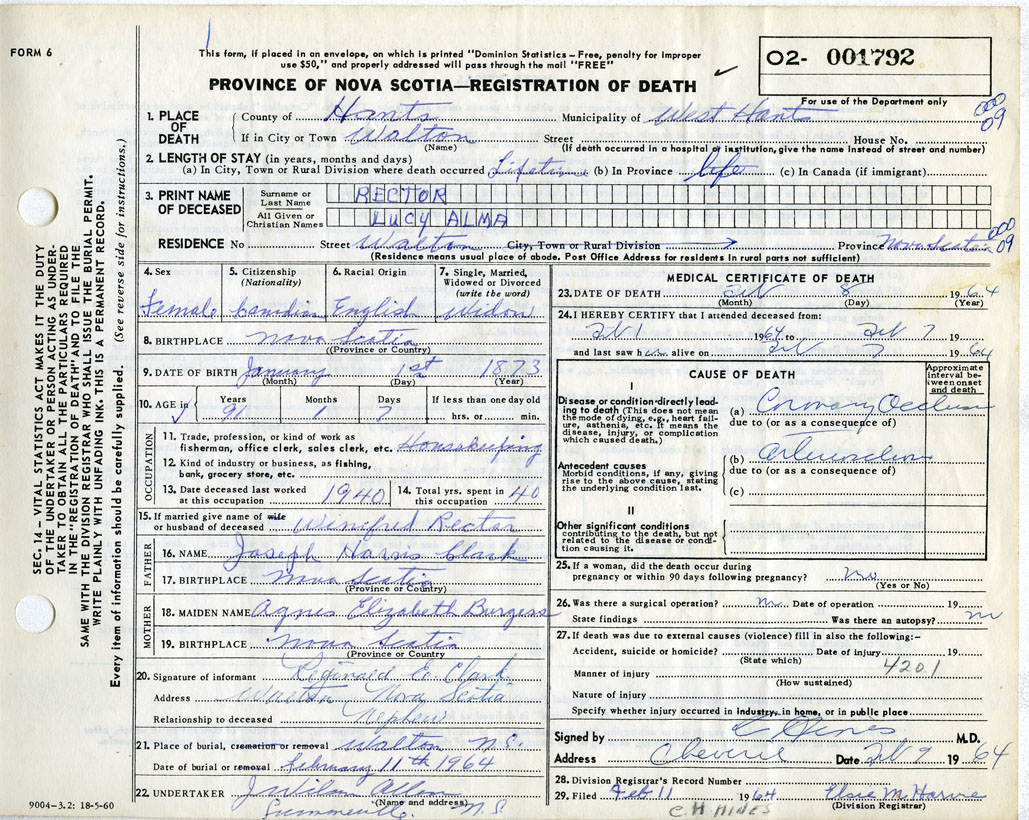 FORM 6
This form, if placed in an envelope, on which is printed "Dominion Statistics – Free, penalty for improper
use $50," and properly addressed will pass through the mail "FREE"
PROVINCE OF NOVA SCOTIA—REGISTRATION OF DEATH
02- 001792
For use of the Department only
000
09
1. PLACE OF DEATH
County of Hants Municipality of West Hants
If in City or Town Walton Street House No.
(Name) (If death occurred in a hospital or institution, give the name instead of street and number)
2. LENGTH OF STAY (in years, months and days)
(a) In City, Town or Rural Division where death occurred Lifetime (b) In Province life (c) In Canada (if immigrant)
3. PRINT NAME OF DECEASED
Surname or Last Name RECTOR
All Given or Christian Names LUCY ALMA
000
09
RESIDENCE No Street Walton City, Town or Rural Division Province Nova Scotia
(Residence means usual place of abode. Post Office Address for residents in rural parts not sufficient)
4. Sex 5. Citizenship 6. Racial Origin 7. Single, Married,
(Nationality) Widowed or Divorced
(write the word)
Female Canadian English Widow
8. BIRTHPLACE Nova Scotia
(Province or Country)
9. DATE OF BIRTH January 1st 1873
(Month) (Day) (Year)
10. AGE in Years Months Days If less than one day old
91 1 7 hrs. or min.
OCCUPATION
11. Trade, profession, or kind of work as
fisherman, office clerk, sales clerk, etc. Housekeeping
12. Kind of industry or business, as fishing,
bank, grocery store, etc.
13. Date deceased last worked at this occupation 1940 14. Total yrs. spent in this occupation 40
15. If married give name of wife
or husband of deceased Winifred Rector
FATHER
16. NAME Joseph Harris Clark
17. BIRTHPLACE Nova Scotia
(Province or Country)
MOTHER
18. MAIDEN NAME Agnes Elizabeth Burgess
19. BIRTHPLACE Nova Scotia
(Province or Country
20. Signature of informant Reginald E. Clark
Address Walton Nova Scotia
Relationship to deceased Nephew
21. Place of burial, cremation or removal Walton N.S.
Date of burial or removal February 11th 1964
22. UNDERTAKER Allen
(Name and address)
Summerville N.S.
9004-3.2: 18-5-60
MEDICAL CERTIFICATE OF DEATH
23. DATE OF DEATH Feb 8 1964
(Month) (Day) (Year)
24. I HEREBY CERTIFY that I attended deceased from:
Feb 1 1964 to Feb 7 19
and last saw her alive on Feb 7 1964
CAUSE OF DEATH
Approximate interval between onset and death
I
Disease or condition directly leading to death (This does not mean the mode of dying, e.g., heart failure, asthenia, etc. It means the disease, injury, or complication which caused death.)
(a) Coronary Occlusion
due to (or as a consequence of)
Antecedent causes
Morbid conditions, if any, giving rise to the above cause, stating the underlying condition last.
(b)
due to (or as a consequence of)
(c)
II
Other significant conditions
contributing to the death, but not related to the disease or condition causing it.
25. If a woman, did the death occur during
pregnancy or within 90 days following pregnancy? no
(Yes or No)
26. Was there a surgical operation? no Date of operation 19
State findings Was there an autopsy? no
27. If death was due to external causes (violence) fill in also the following:–
Accident, suicide or homicide? Date of injury 19
(State which)
Manner of injury 4201
(How sustained)
Nature of injury
Specify whether injury occurred in industry, in home, or in public place
Signed by C Hines M.D.
Address Cheverie Date Feb 9 1964
28. Division Registrar's Record Number
29. Filed Feb 11 1964 Elsie M. Harvie
(Division Registrar)
C.H HINES
SEC. 14 – VITAL STATISTICS ACT MAKES IT THE DUTY
OF THE UNDERTAKER OR PERSON ACTING AS UNDER-
TAKER TO OBTAIN ALL THE PARTICULARS REQUIRED
IN THE "REGISTRATION OF DEATH" AND TO FILE THE
SAME WITH THE DIVISION REGISTRAR WHO SHALL ISSUE THE BURIAL PERMIT.
WRITE PLAINLY WITH UNFADING INK. THIS IS A PERMANENT RECORD.
Every item of information should be carefully supplied. (See reverse side for instructions.)